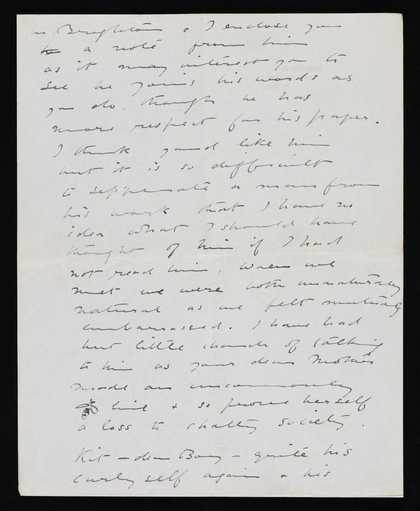 in Brighton & I enclose you
a note from him
as it may interest you to
see he joins his words as
you do, though he has
more respect for his paper.
I think you'd like him
but it is so difficult
to sepperate a man from
his work that I have no
idea what I should have
thought of him if I had
not read him. When we
met we were both unnaturally
natural as we felt mutually
embarrassed. I have had
but little chance of talking
to him as your dear Mother
made an uncommonly
& so proved herself
a loss to chatty society.
Kit - dear Boy - quite his
curly self again & his